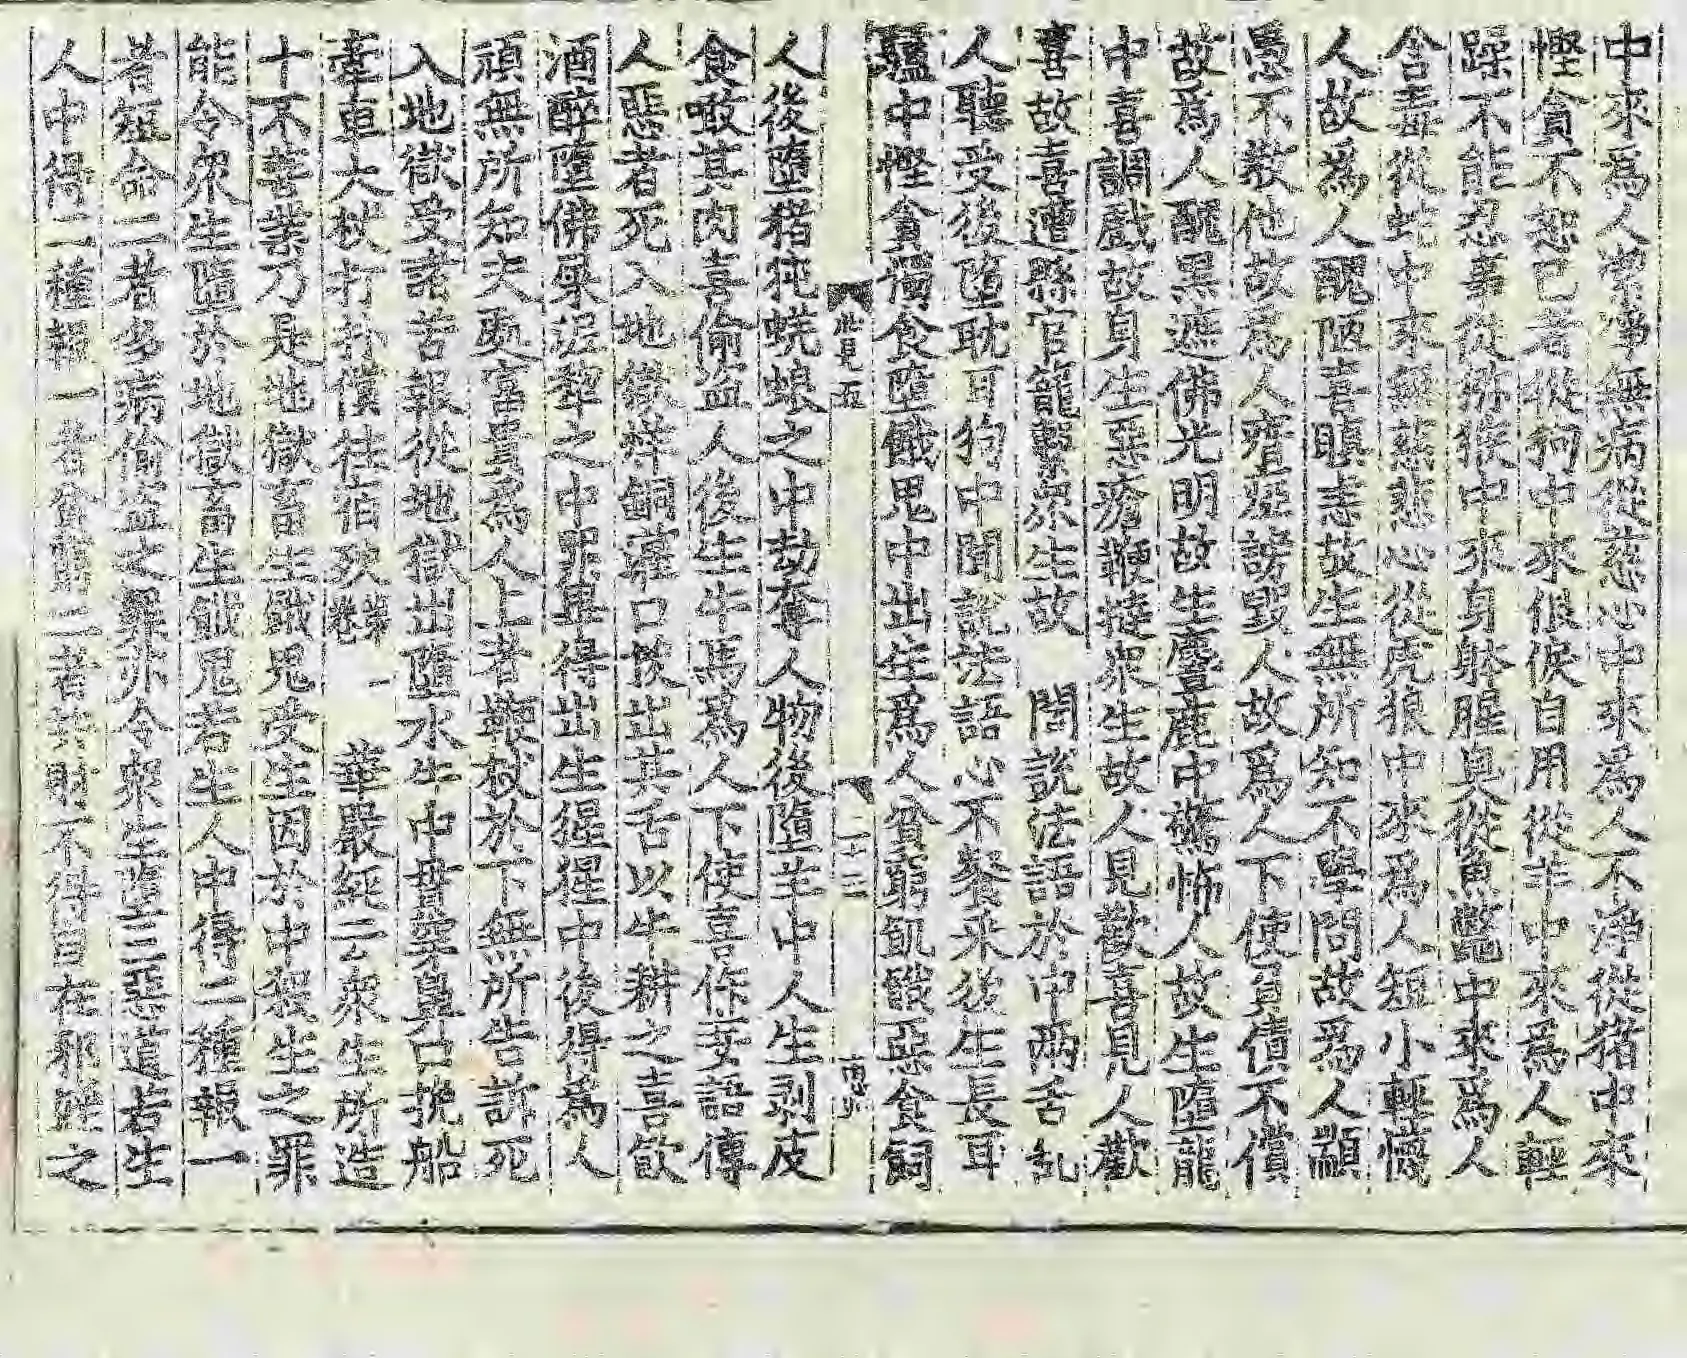 中來爲人常淨無病從慈心中來爲人不淨從猪中來
慳貪不恕己者從狗中來佷戾自用從羊中來爲人輕
躁不能忍事從獼猴中來身躰腥臭從魚鼈中來爲人
含毒從蛇中來無慈悲心從虎狼中來爲人短小輕懱
人故爲人醜陋喜瞋恚故生無所知不學問故爲人顓
愚不教他故爲人瘖瘂謗毀人故爲人下使負債不償
故爲人醜黑遮佛光明故生麞鹿中驚怖人故生墮龍
中喜調戲故身生惡瘡鞭撻衆生故人見歡喜見人歡
喜故喜遭縣官籠繫衆生故 聞說法語於中兩舌乱
人聽受後墮耽耳狗中聞說法語心不飡采後生長耳
驢中慳貪獨食墮餓鬼中出生爲人貧窮飢餓惡食飼
人後墮猪㹠蜣蜋之中劫奪人物後墮羊中人生剥皮
食噉其肉喜偷盜人後生牛馬爲人下使喜作妄語傳
人惡者死入地獄烊銅灌口拔出其舌以牛耕之喜飲
酒醉墮佛屎泥犂之中罪畢得出生猩猩中後得爲人
頑無所知夫處富貴爲人上者鞭杖於下無所告訴死
入地獄受諸苦報從地獄出墮水牛中貫穿鼻口挽船
牽車大杖打扑償往宿殃 華嚴經云衆生所造
十不善業乃是地獄畜生餓鬼受生因於中殺生之罪
能令衆生墮於地獄畜生餓鬼若生人中得二種報一
者短命二者多病偷盜之罪亦令衆生墮三惡道若生
人中得二種報一者貧窮二者共財不得自在邪婬之